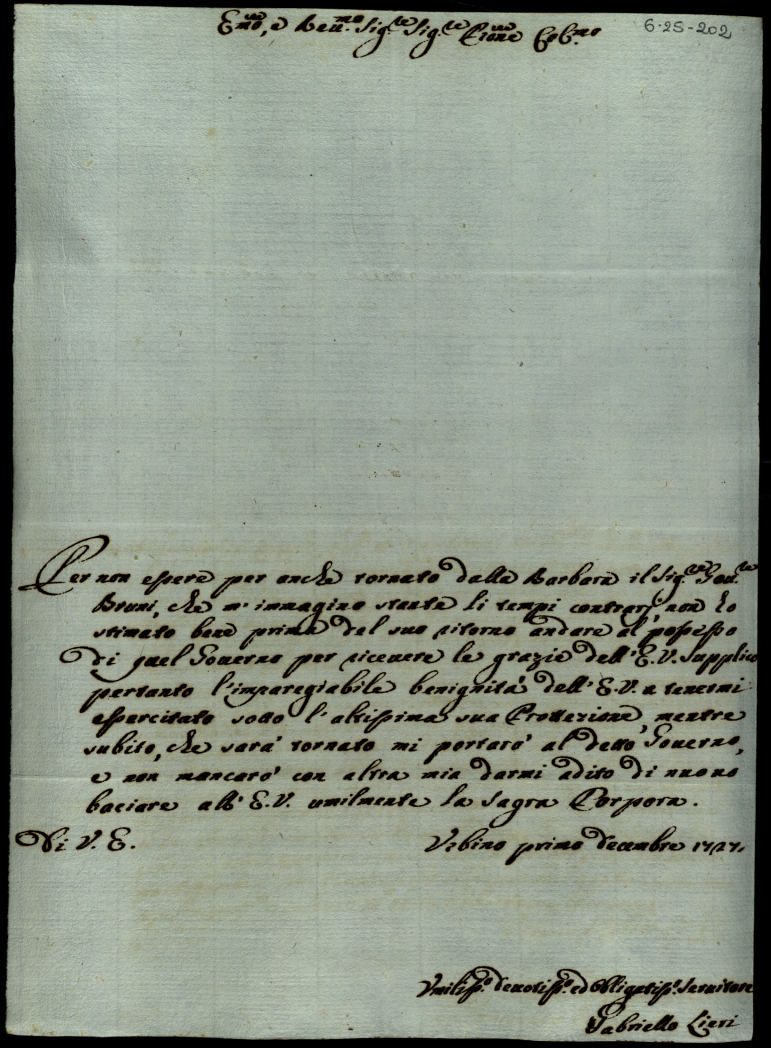 Emo, e Reu.mo Sig.re Sig.re Pròne Colmo
6-25-202
Per non essere per anche tornato dalla Barbara il Sig.re Gou.re
Bruni, che m'immagino stante li tempi contrarj, non hò
stimato bene prima del suo ritorno andare al possesso
di quel Gouerno per riceuere le grazie dell'E.V. Supplico
pertanto l'imparegiabile benignità dell'E.V. a tenermi
essercitato sotto l'altissima sua Protterione, mentre
subito, che sarà tornato mi portarò al detto Gouerno,
e non mancarò con altra mia darmi adito di nuouo
baciare all'E.V. umilmente la Sagra Porpora.
Di V. E.
Vrbino primo Decembre 1727.
Vmiliss.o Deuotiss.o ed Obligatiss.o Seruitore
Gabriello Lieri